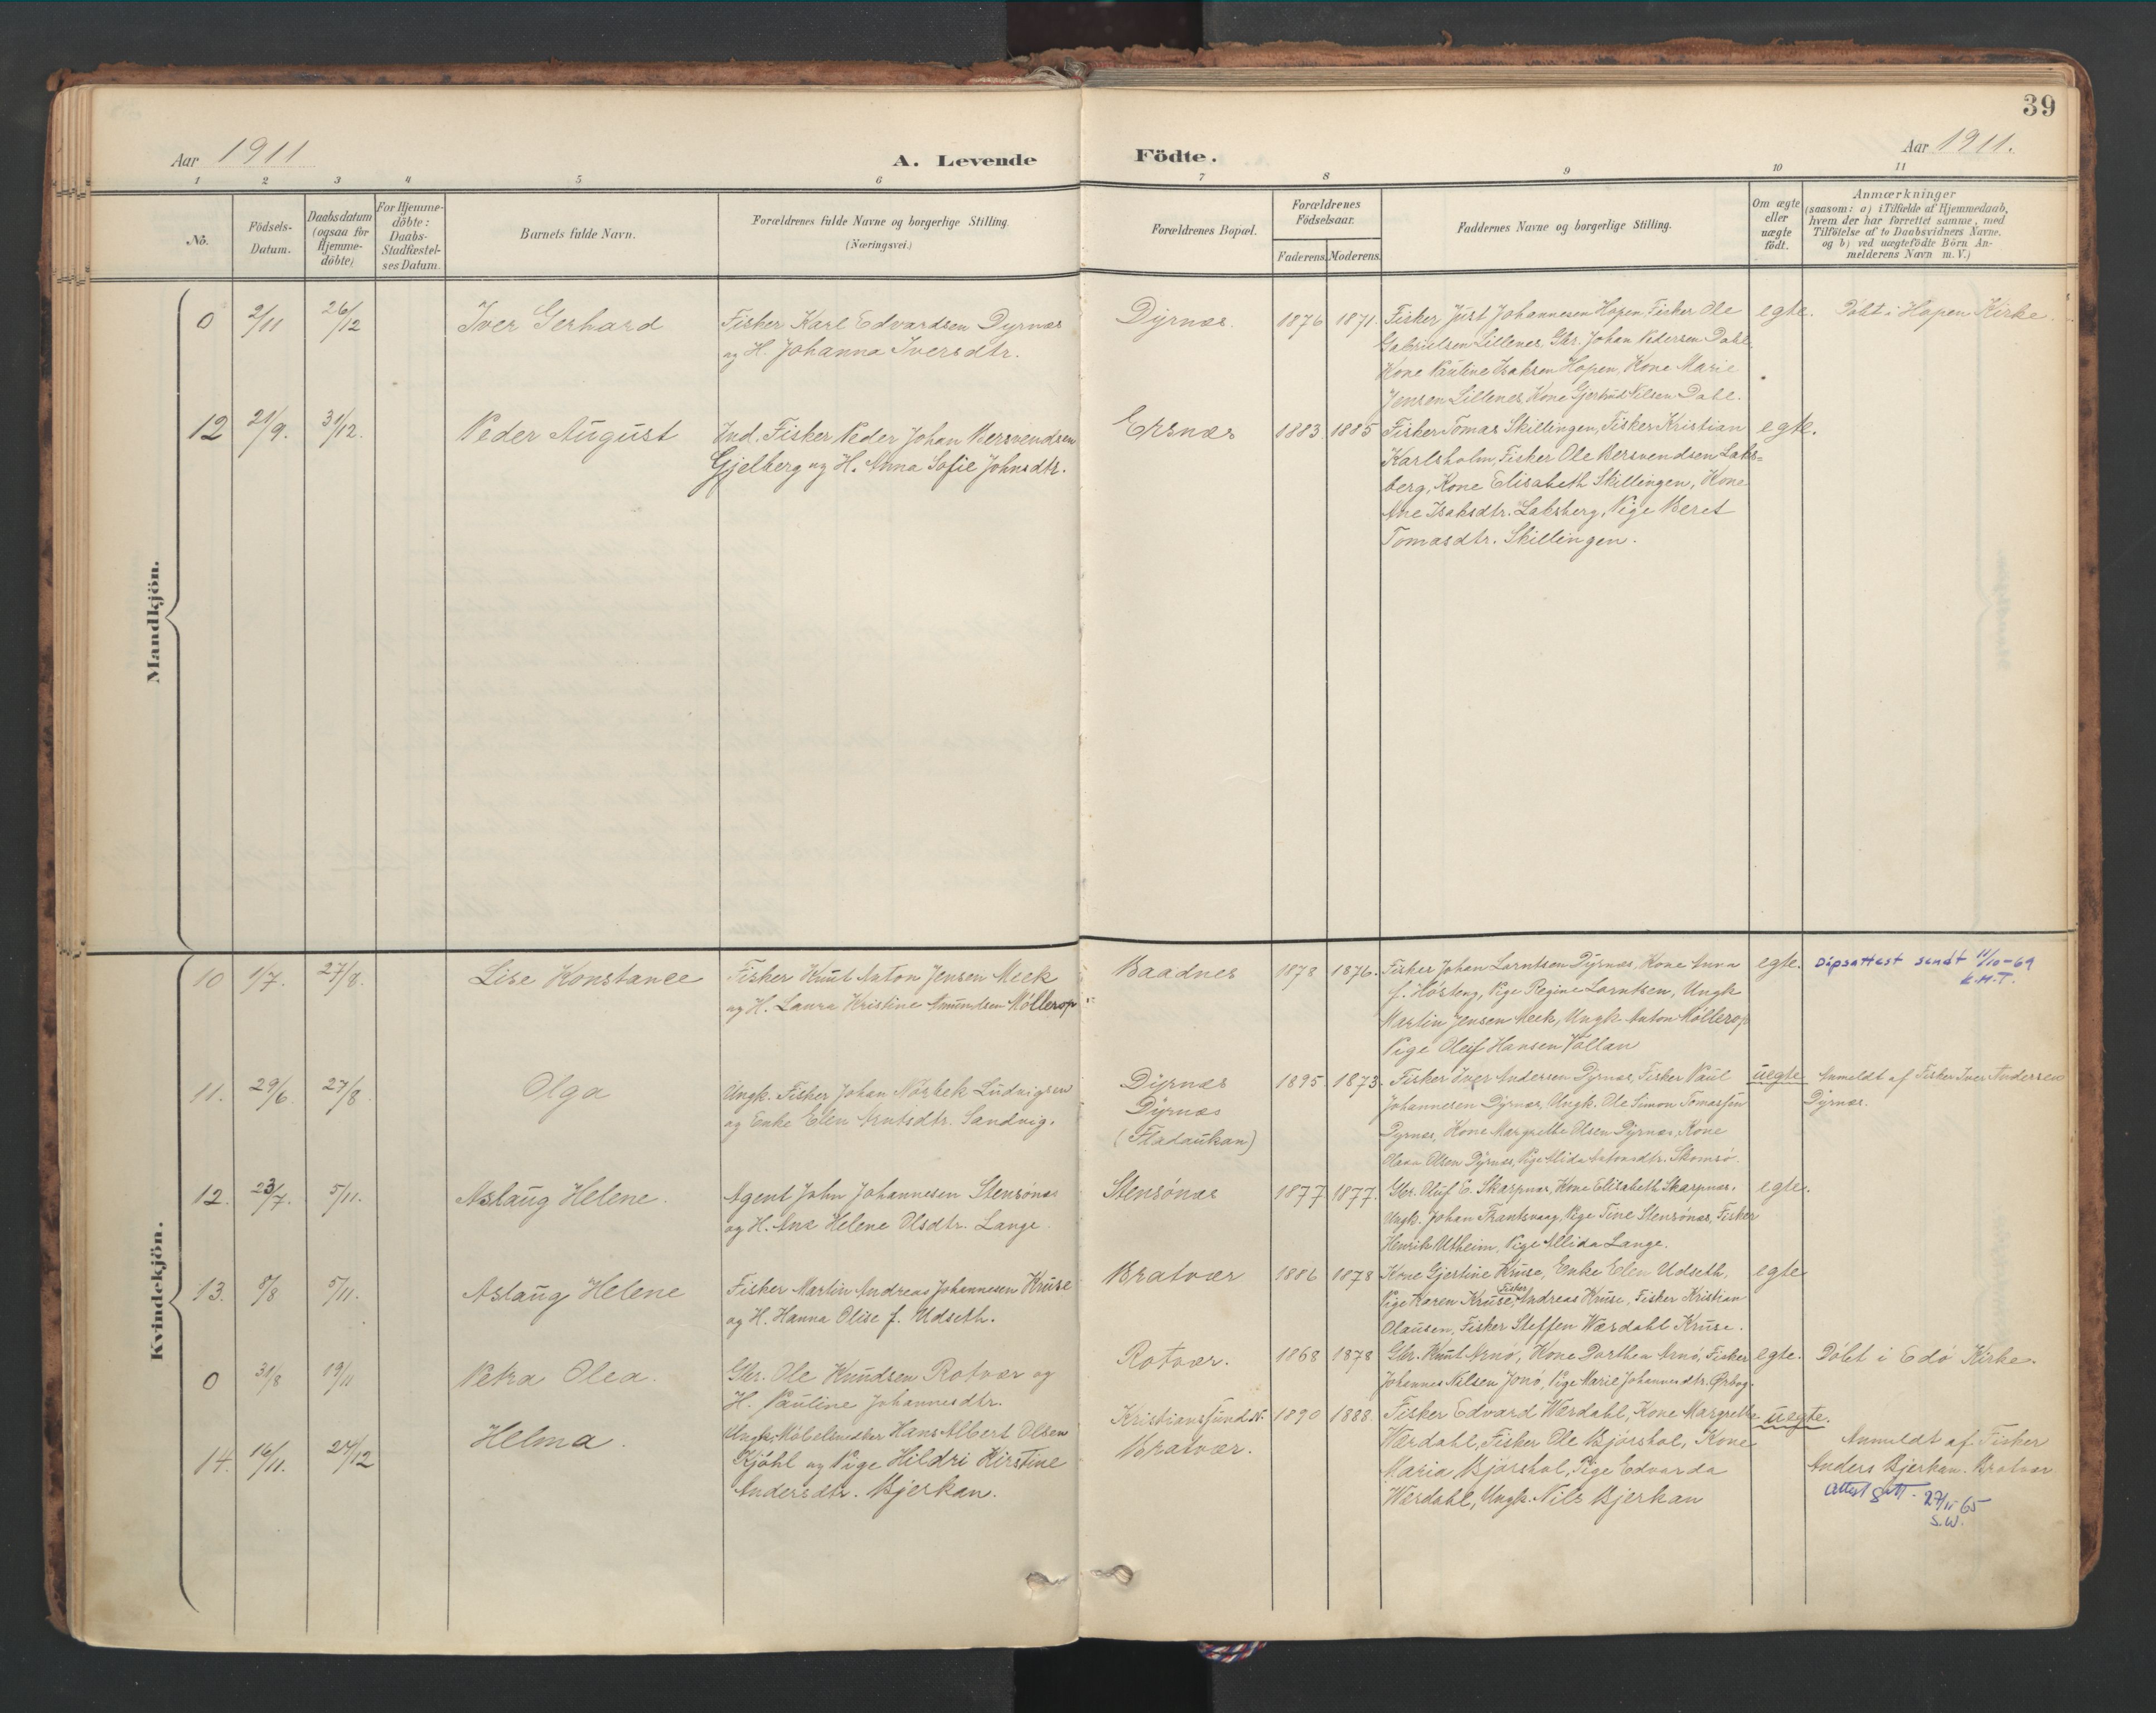 39
Aar 1911
A. Levende
Födte.
Aar 1911.
1 2 3 4 5 6 7 8 9 10 11
No.
Födsels-
Datum.
Daabsdatum
(ogsaa for
Hjemme-
döbte)
For Hjemme-
döbte:
Daabs-
Stadfæstel-
ses Datum.
Barnets fulde Navn.
Forældrenes fulde Navne og borgerlige Stilling.
(Næringsvei.)
Forældrenes Bopæl.
Forældrenes
Födselsaar.
Faderens. Moderens.
Faddernes Navne og borgerlige Stilling.
Om ægte
eller
uægte
födt.
Anmærkninger
(saasom: a) i Tilfælde af Hjemmedaab,
hvem der har forrettet samme, med
Tilföielse af to Daabsvidners Navne,
og b) ved uægtefödte Börn An-
melderens Navn m. V.)
Mandkjön.
0 2/11 26/12 Iver Gerhard
Fisker Karl Edvardsen Dyrnæs
og H. Johanna Iversdtr.
Dyrnæs. 1876 1871.
Fisker Just Johannesen Hopen, Fisker Ole
Gabrielsen Lillenes, Gbr. Johan Pedersen Dahl,
Kone Pauline Isaksen Hopen, Kone Marie
Jensen Lillenes, Kone Gjertrud Nilsen Dahl.
egte. Döbt i Hopen Kirke.
12 21/9. 31/12. Peder August
Ind. Fisker Peder Johan Bersvendsen
Gjelberg og H. Anna Sofie Johnsdtr.
Ersnæs 1883 1885
Fisker Tomas Skillingen, Fisker Kristian
Karlsholm, Fisker Ole Bersvendsen Laks=
berg, Kone Elisabeth Skillingen, Kone
Ane Isaksdtr. Laksberg, Pige Beret
Tomasdtr. Skillingen.
egte.
Kvindekjön.
10 1/7. 27/8. Lise Konstance
Fisker Knut Anton Jensen Meek
og H. Laura Kristine Amundsen Möllerop
Baadnes 1878 1876.
Fisker Johan Larntsen Dyrnæs, Kone Anna
f. Hösteng, Pige Regine Larntsen, Ungk.
Martin Jensen Meek, Ungk. Anton Möllerop
Pige Oleif Hansen Vollan
egte. Dåpsattest sendt 11/10-69
K.H.T.
11. 29/6. 27/8. Olga
Ungk. Fisker Johan Norbek Ludvigsen
og Enke Elen Arntsdtr. Sandvig.
Dyrnæs
Dyrnæs
(Fladaukan)
1895. 1873.
Fisker Iver Andersen Dyrnæs, Fisker Paul
Johannesen Dyrnæs, Ungk. Ole Simon Tomassen
Dyrnæs, Kone Margrethe Olsen Dyrnæs, Kone
Olava Olsen Dyrnæs, Pige Alida Antonsdtr. Skomsö.
uegte Anmeldt af Fisker Iver Andersen
Dyrnæs.
12. 23/7. 5/11. Aslaug Helene.
Agent John Johannesen Stensönæs
og H. Ane Helene Olsdtr. Lange.
Stensönæs 1877 1877.
Gbr. Oluf E. Skarpnæs, Kone Elisabeth Skarpnæs,
Ungk. Johan Frantsvaag, Pige Tine Stensönæs, Fisker
Henrik Utheim, Pige Alida Lange.
egte.
13. 8/8 5/11. Aslaug Helene
Fisker Martin Andreas Johannesen Kruse
og H. Hanna Olise f. Udseth.
Bratvær 1886 1878
Kone Gjertine Kruse, Enke Elen Udseth,
Pige Karen Kruse, Fisker Andreas Kruse, Fisker Kristian
Olausen, Fisker Steffen Wærdahl Kruse.
egte
0 31/8 19/11 Petra Olea.
Gbr. Ole Knudsen Rotvær og
H. Pauline Johannesdtr.
Rotvær. 1868 1878
Gbr. Knut Arnö, Kone Dorthea Arnö, Fisker
Johannes Nilsen Jonö, Pige Marie Johannesdtr. Ørbog.
egte. Döbt i Edö Kirke.
14. 16/11. 24/12 Helma.
Ungk. Möbelsnedker Hans Albert Olsen
Kjöhl og Pige Hildri Kirstine
Andersdtr. Bjerkan.
Kristiansund N.
Bratvær.
1890 1888.
Fisker Edvard Wærdahl, Kone Margrethe
Wærdahl, Fisker Ole Bjorshol, Kone
Maria Bjørshol, Pige Edvarda
Wærdahl, Ungk. Nils Bjerkan
uegte.
Anmeldt af Fisker
Anders Bjerkan. Bratvær
Attest gitt. 27/11-65
S.W.